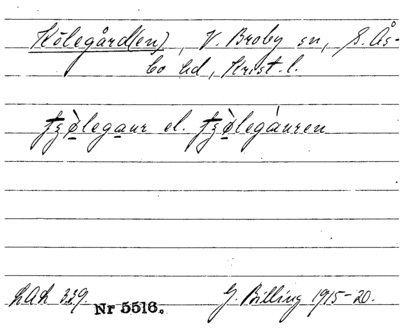 Kölegård(en), V. Broby sn, S. Ås-
bo hd, Krist. l.
tʒø̀legaur el. tʒø̀legàuren
LAL 339. Nr 5516. G. Billing 1915-20.